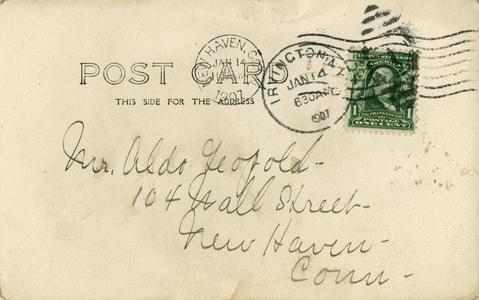 NEW HAVEN, C
JAN 14
1907
IRVINGTON, N.Y.
JAN 14
630AM
1907
POST CARD
THIS SIDE FOR THE ADDRESS
1 1
POSTAGE
ONE CENT
Mr. Aldo Leopold-
104 Wall Street-
New Haven-
Conn-